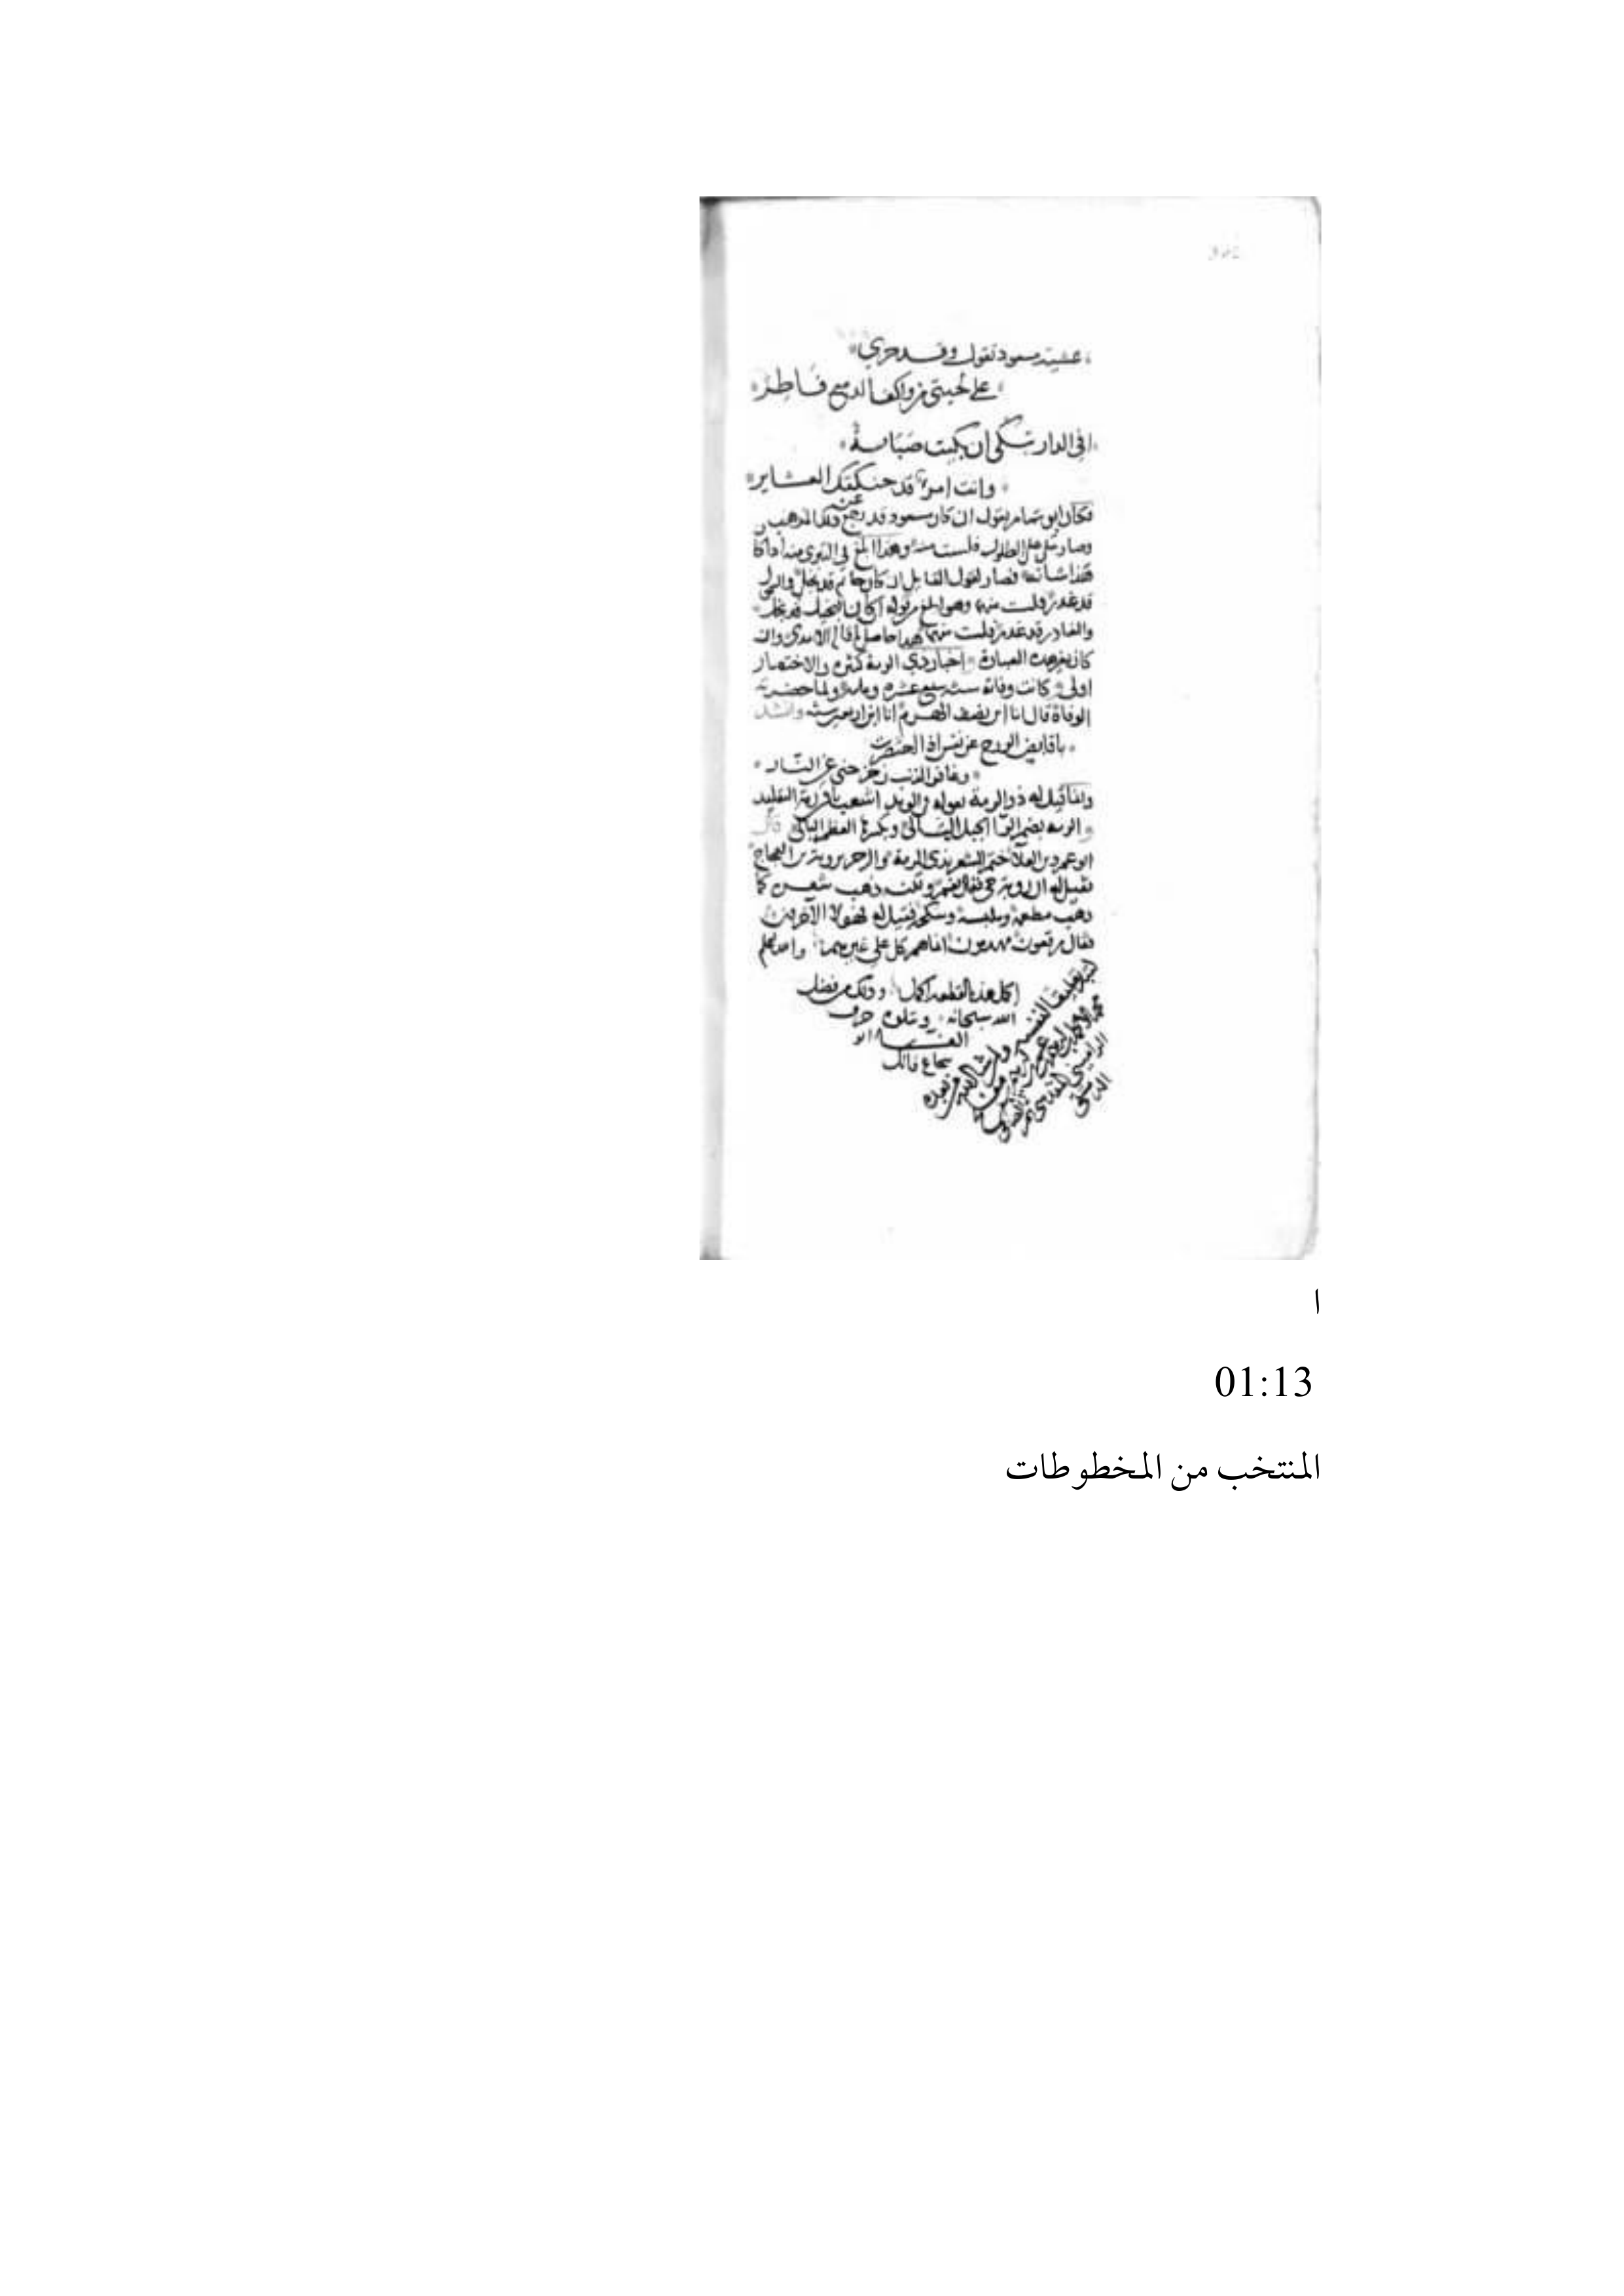 عشية مسعود تقول وقد جرى
على لحيتي من واكف الدمع قاطر
افي الدار تبكي ان بكيت صبابة
وانت امرؤ قد حنكتك العشاير
فكان ابو تمام يقول ان كان مسعود قد رجع عن ذلك المذهب
وصار يبكي على الطلول فلست منه وهذا ابلغ في التبري منه اذا كان
هذا شانه فصار كقول القايل ان كان حاتم قد بخل والسموال
قد غدر فلست منهما وهو ابلغ من قوله ان كان البخيل قد بخل
والغادر قد غدر فلست منهما هذا حاصل ما قال الامدي وان
كان بغير هذه العبارة اخبار ذي الرمة كثيرة والاختصار
اولى كانت وفاته سنة سبع عشرة وماية ولما حضرته
الوفاة قال انا ابن نصف الهرم انا ابن اربعين سنة وانشد
يا قابض الروح عن نفسي اذا احتضرت
وغافر الذنب زحزحني عن النار
وانما قيل له ذو الرمة لقوله في الوتد اشعث باقي رمة التقليد
الرمة بضم الراء الحبل البالي وبكسرها العظم البالي قال
ابو عمرو بن العلاء ختم الشعر بذي الرمة والرجز بروبة بن العجاج
فقيل له ان روبة حي فقال نعم ولكن ذهب شعره كما
ذهب مطعمه وملبسه ومنكحه فقيل له فهولا الآخرون
فقال مرقعون مهدمون انما هم كل على غيرهم والله اعلم
اكمل هذه القطعة اكمل وذلك من فضل
الله سبحانه ويتلوه حرف
الفاء ابو
شجاع فاتك
ا
01:13
المنتخب من المخطوطات